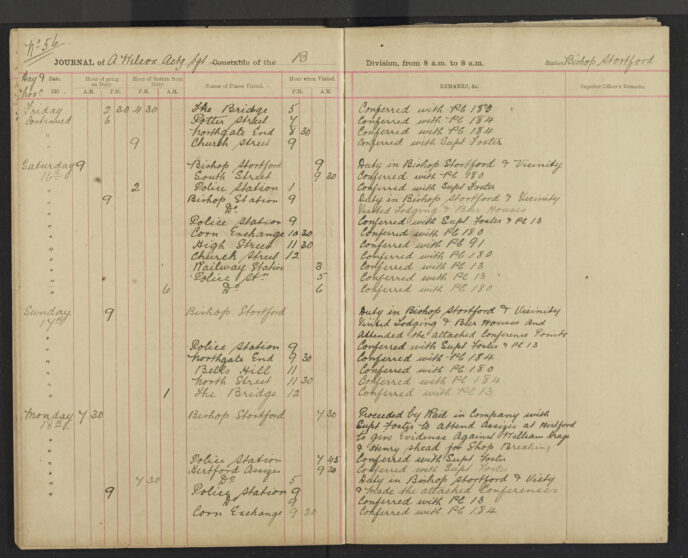 No. 56
JOURNAL of A Wilson Actg Sgt Constable of the B Division, from 8 a.m. to 8 a.m. Station Bishop Stortford
Day & Date. Hour of going on Duty. Hour of Return from Duty. Names of Places Visited. Hour when Visited. REMARKS, &c. Superior Officer's Remarks.
Novr. 190 A.M. P.M. P.M. A.M. P.M. A.M.
Friday 2 30 4 30 The Bridge 5 Conferred with PC 180
Continued 6 Potter Street 7 Conferred with PC 184
" Northgate End 8 30 Conferred with PC 184
" 9 Church Street 9 Conferred with Supt Foster
Saturday 9 Bishop Stortford 9 Duty in Bishop Stortford & Vicinity
16th South Street 9 30 Conferred with PC 180
" 2 Police Station 1 Conferred with Supt Foster
" 9 Bishop Station 9 Duty in Bishop Stortford & Vicinity
" Do Visited Lodging & Beer Houses
" Police Station 9 Conferred with Supt Foster & PC 13
" Corn Exchange 10 30 Conferred with PC 180
" High Street 11 30 Conferred with PC 91
" Church Street 12 Conferred with PC 180
" Railway Station 3 Conferred with PC 13
" Police Stn 5 Conferred with PC 13
" 6 Do 6 Conferred with PC 180
Sunday 9 Bishop Stortford Duty in Bishop Stortford & Vicinity
17th Visited Lodging & Beer Houses and
" attended the attached Conference Points
" Police Station 9 Conferred with Supt Foster & PC 13
" Northgate End 9 30 Conferred with PC 184
" Bells Hill 11 Conferred with PC 180
" North Street 11 30 Conferred with PC 184
" 1 The Bridge 12 Conferred with PC 13
Monday 7 30 Bishop Stortford 7 30 Proceeded by Rail in Company with
18th Supt Foster to attend Assizes at Hertford
" to give Evidence Against William
" & Henry shead for Shop Breaking
" Police Station 7 45 Conferred with Supt Foster
" Hertford Assizes 9 30 Conferred with Supt Foster
" 7 30 Do 5 Duty in Bishop Stortford & Vicity
" 9 Police Station 9 & Made the attached Conferences
" Do 9 Conferred with PC 13
" Corn Exchange 9 30 Conferred with PC 184